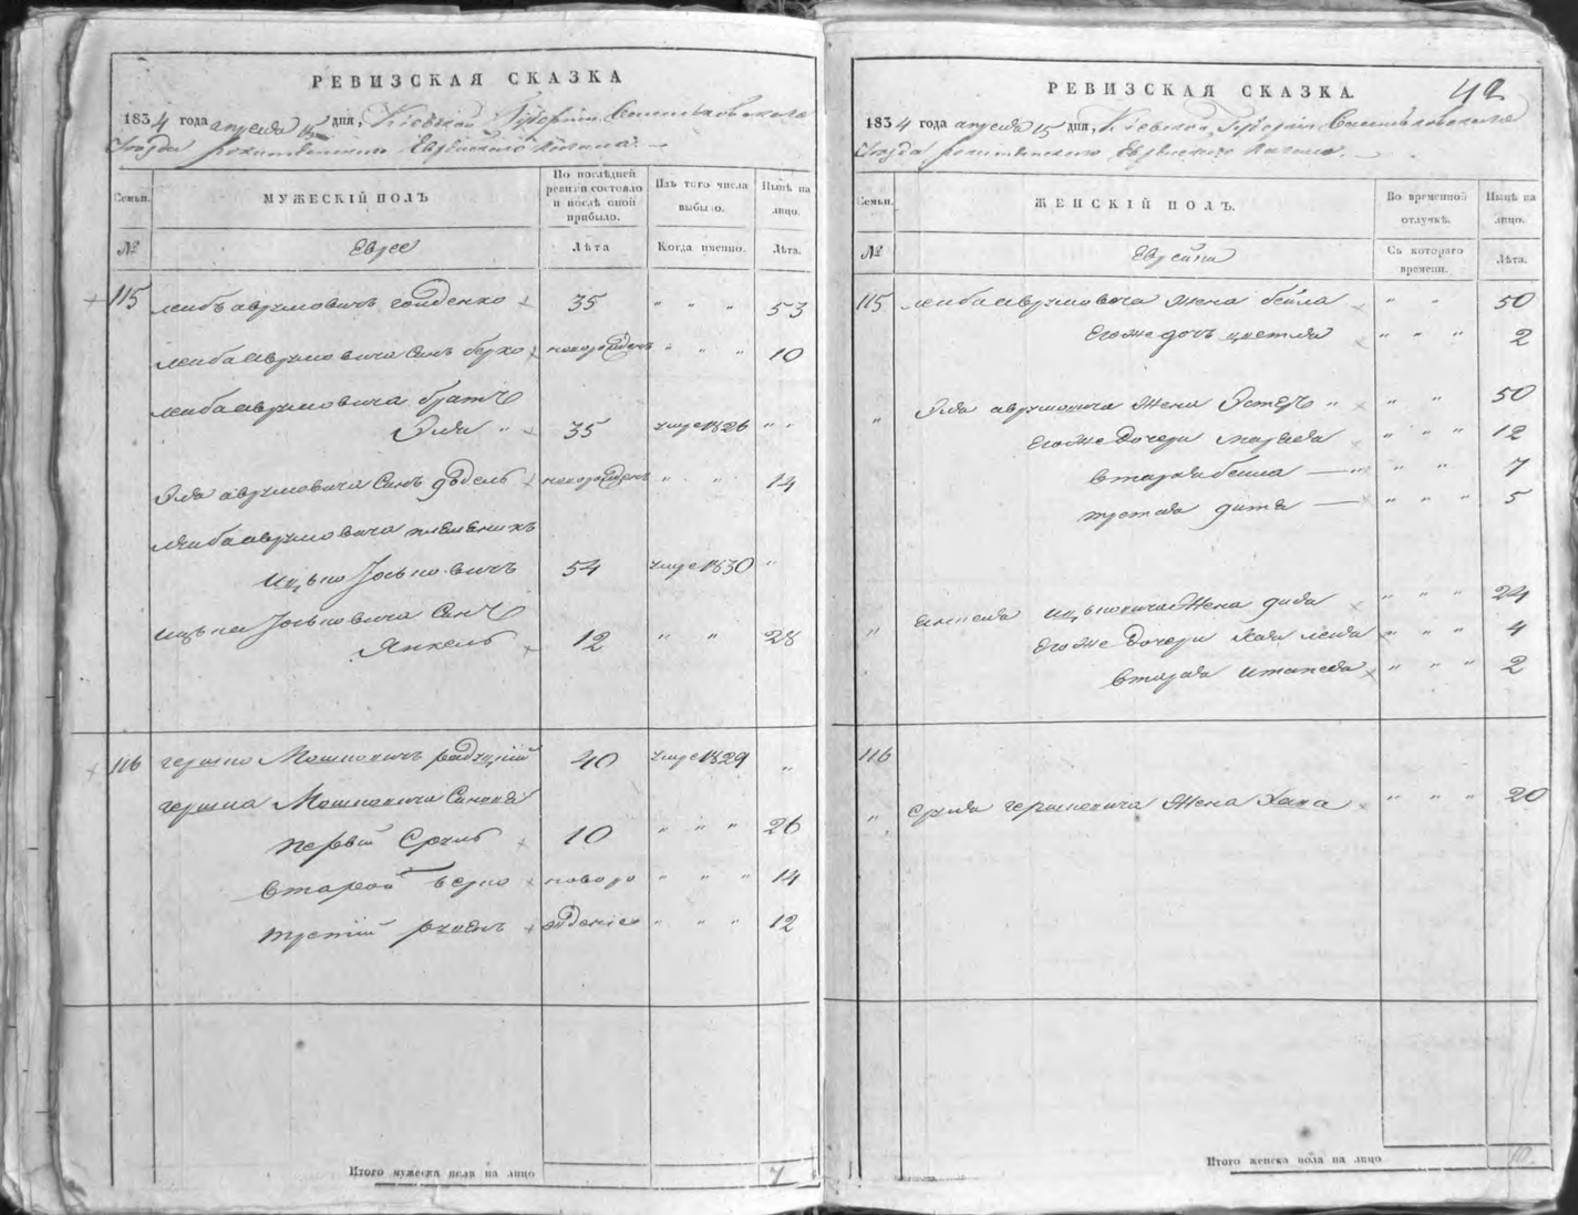 РЕВИЗСКАЯ СКАЗКА
1834 года апреля 15 дня, Кіевской Губерніи Васильковского
Уезда рокитянского Еврейского кагала.
Семьи. МУЖЕСКІЙ ПОЛЪ По послѣдней ревизіи состояло и послѣ оной прибыло. Изъ того числа выбыло. Нынѣ на лицо.
№ Еврее Лѣта Когда именно. Лѣта.
115 лейбъ аврумовичъ гойденко 35 " " " 53
лейба аврумовича Синъ берко новорожденъ " " " 10
лейба аврумовича братъ
Эля " 35 умре 1826 " "
Эля аврумовича Синъ дѣдель новорожденъ " " 14
лейба аврумовича племеникъ
Ицько Јоськовичъ 54 умре 1830 "
Ицька Јоськовича Синъ
Янкель 12 " " 28
116 гершко Мошковичъ радзцкій 40 умре 1829 "
гершка Мошковича Синовя
первій Сруль 10 " " " 26
второй берко новоро " " " 14
третій рувинъ жденіе " " " 12
Итого мужеска пола на лицо 7
РЕВИЗСКАЯ СКАЗКА. 42
1834 года апреля 15 дня, Кіевской Губерніи Васильковского
Уезда рокитянского Еврейского кагала.
Семьи. ЖЕНСКІЙ ПОЛЪ. Во временной отлучкѣ. Нынѣ на лицо.
№ Еврейки Съ котораго времени. Лѣта.
115 лейба аврумовича Жена бейла " " 50
Егоже дочь цветля " " " 2
" Эля аврумовича Жена Эстеръ " " " 50
Егоже Дочери маряся " " " 12
вторая бейла " " 7
третая " " " 5
" Ицьковича Жена " " " 24
Егоже Дочери Хая лея " " " 4
вторая " " " 2
116
" Сруля гершковича Жена Хана " " " 20
Итого женска пола на лицо 10.